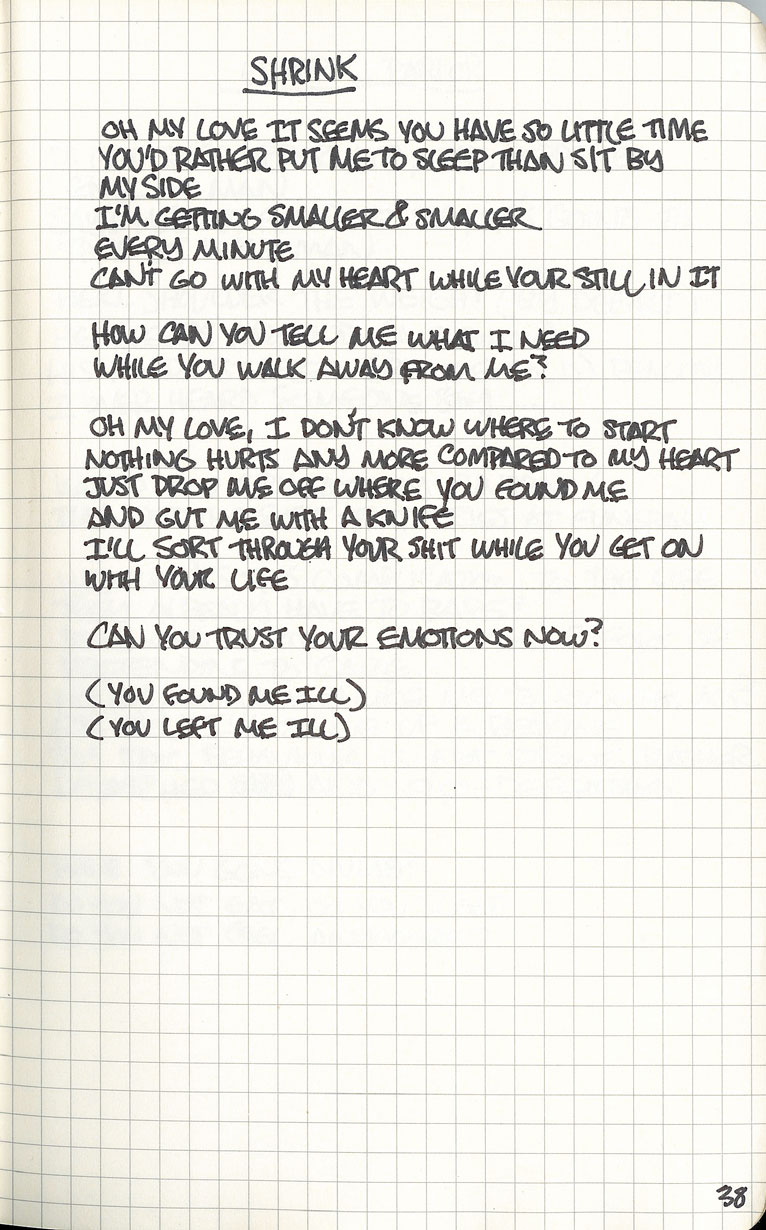 SHRINK
OH MY LOVE IT SEEMS YOU HAVE SO LITTLE TIME
YOU'D RATHER PUT ME TO SLEEP THAN SIT BY
MY SIDE
I'M GETTING SMALLER & SMALLER
EVERY MINUTE
CAN'T GO WITH MY HEART WHILE YOUR STILL IN IT
HOW CAN YOU TELL ME WHAT I NEED
WHILE YOU WALK AWAY FROM ME?
OH MY LOVE, I DON'T KNOW WHERE TO START
NOTHING HURTS ANY MORE COMPARED TO MY HEART
JUST DROP ME OFF WHERE YOU FOUND ME
AND GUT ME WITH A KNIFE
I'LL SORT THROUGH YOUR SHIT WHILE YOU GET ON
WITH YOUR LIFE
CAN YOU TRUST YOUR EMOTIONS NOW?
(YOU FOUND ME ILL)
(YOU LEFT ME ILL)
38